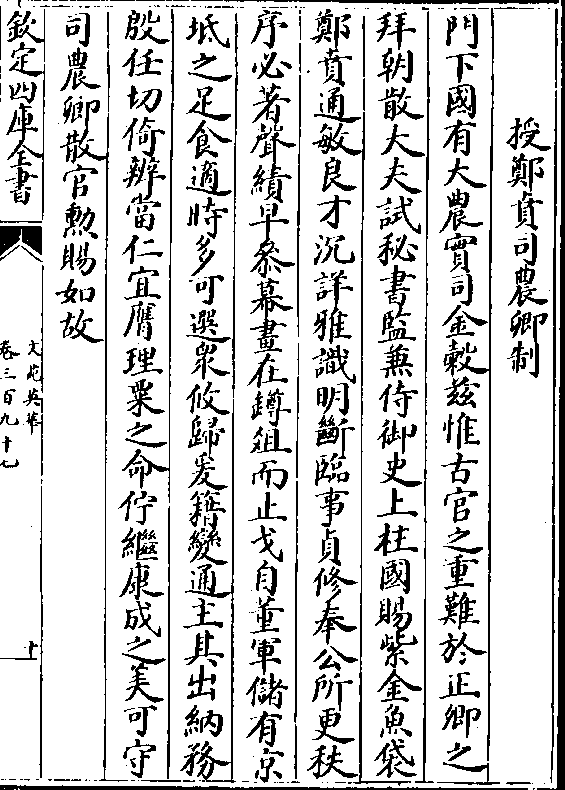 授鄭賁司農卿制
門下國有大農實司金穀兹惟古官之重難於正卿之
拜朝散大夫試秘書監兼侍御史上柱國賜紫金魚袋
鄭賁通敏良才沉詳雅識明斷臨事貞修奉公所更秩
序必著聲績早叅幕畫在罇俎而止戈自董軍儲有京
坻之足食適時多可選衆攸歸爰籍變通主其出納務
殷任切倚辦當仁宜膺理粟之命佇繼康成之美可守
司農卿散官勲賜如故
欽定四庫全書
文苑英華
卷三百九十七
十